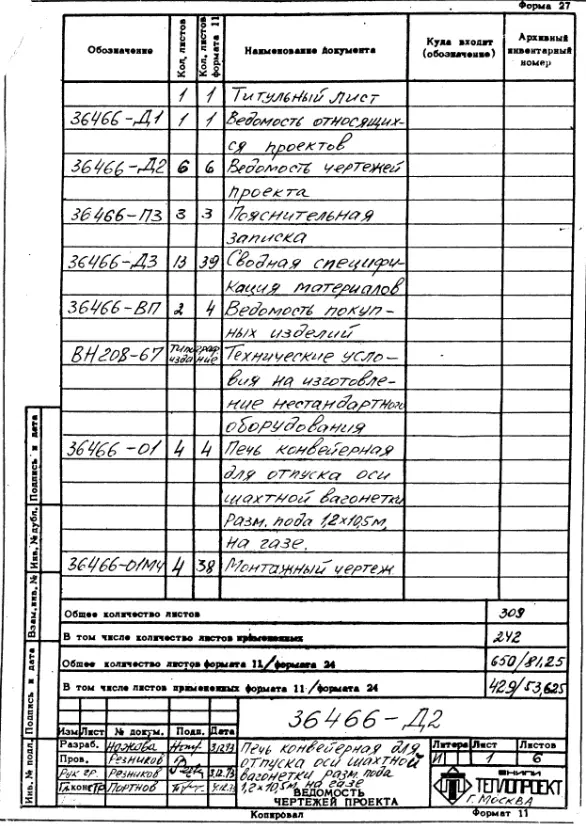 Форма 27
Обозначение Кол. листов Кол. листов формата 11 Наименование документа Куда входит (обозначение) Архивный инвентарный номер
1 1 Титульный лист
36466-Д1 1 1 Ведомость относящих-
ся проектов
36466-Д2 6 6 Ведомость чертежей
проекта
36466-ПЗ 3 3 Пояснительная
записка
36466-Д3 13 39 Сводная специфи-
кация материалов
36466-ВП 2 4 Ведомость покуп-
ных изделий
ВН208-67 Типограф издание Технические усло-
вия на изготовле-
ние нестандартного
оборудования
36466-01 4 4 Печь конвейерная
для отпуска оси
шахтной вагонетки
Разм. пода 1,2×10,5м,
на газе.
36466-01МЧ 4 38 Монтажный чертеж
Общее количество листов 309
В том числе количество листов примененных 242
Общее количество листов формата 11/формата 24 650/81,25
В том числе листов примененных формата 11/формата 24 429/53,625
36466-Д2
Изм Лист № докум. Подп. Дата
Разраб. 3.12.73
Пров. Резников
Рук. гр. Резников 3.12.73
Гл.констр Портнов
Печь конвейерная для
отпуска оси шахтной
вагонетки разм. пода
1,2×10,5м, на газе
ВЕДОМОСТЬ
ЧЕРТЕЖЕЙ ПРОЕКТА
Литера Лист Листов
И 1 6
ВНИПИ
ТЕПЛОПРОЕКТ
г. Москва
Инв. № подл. Подпись и дата Взам. инв. № Инв. № дубл. Подпись и дата
Копировал Формат 11